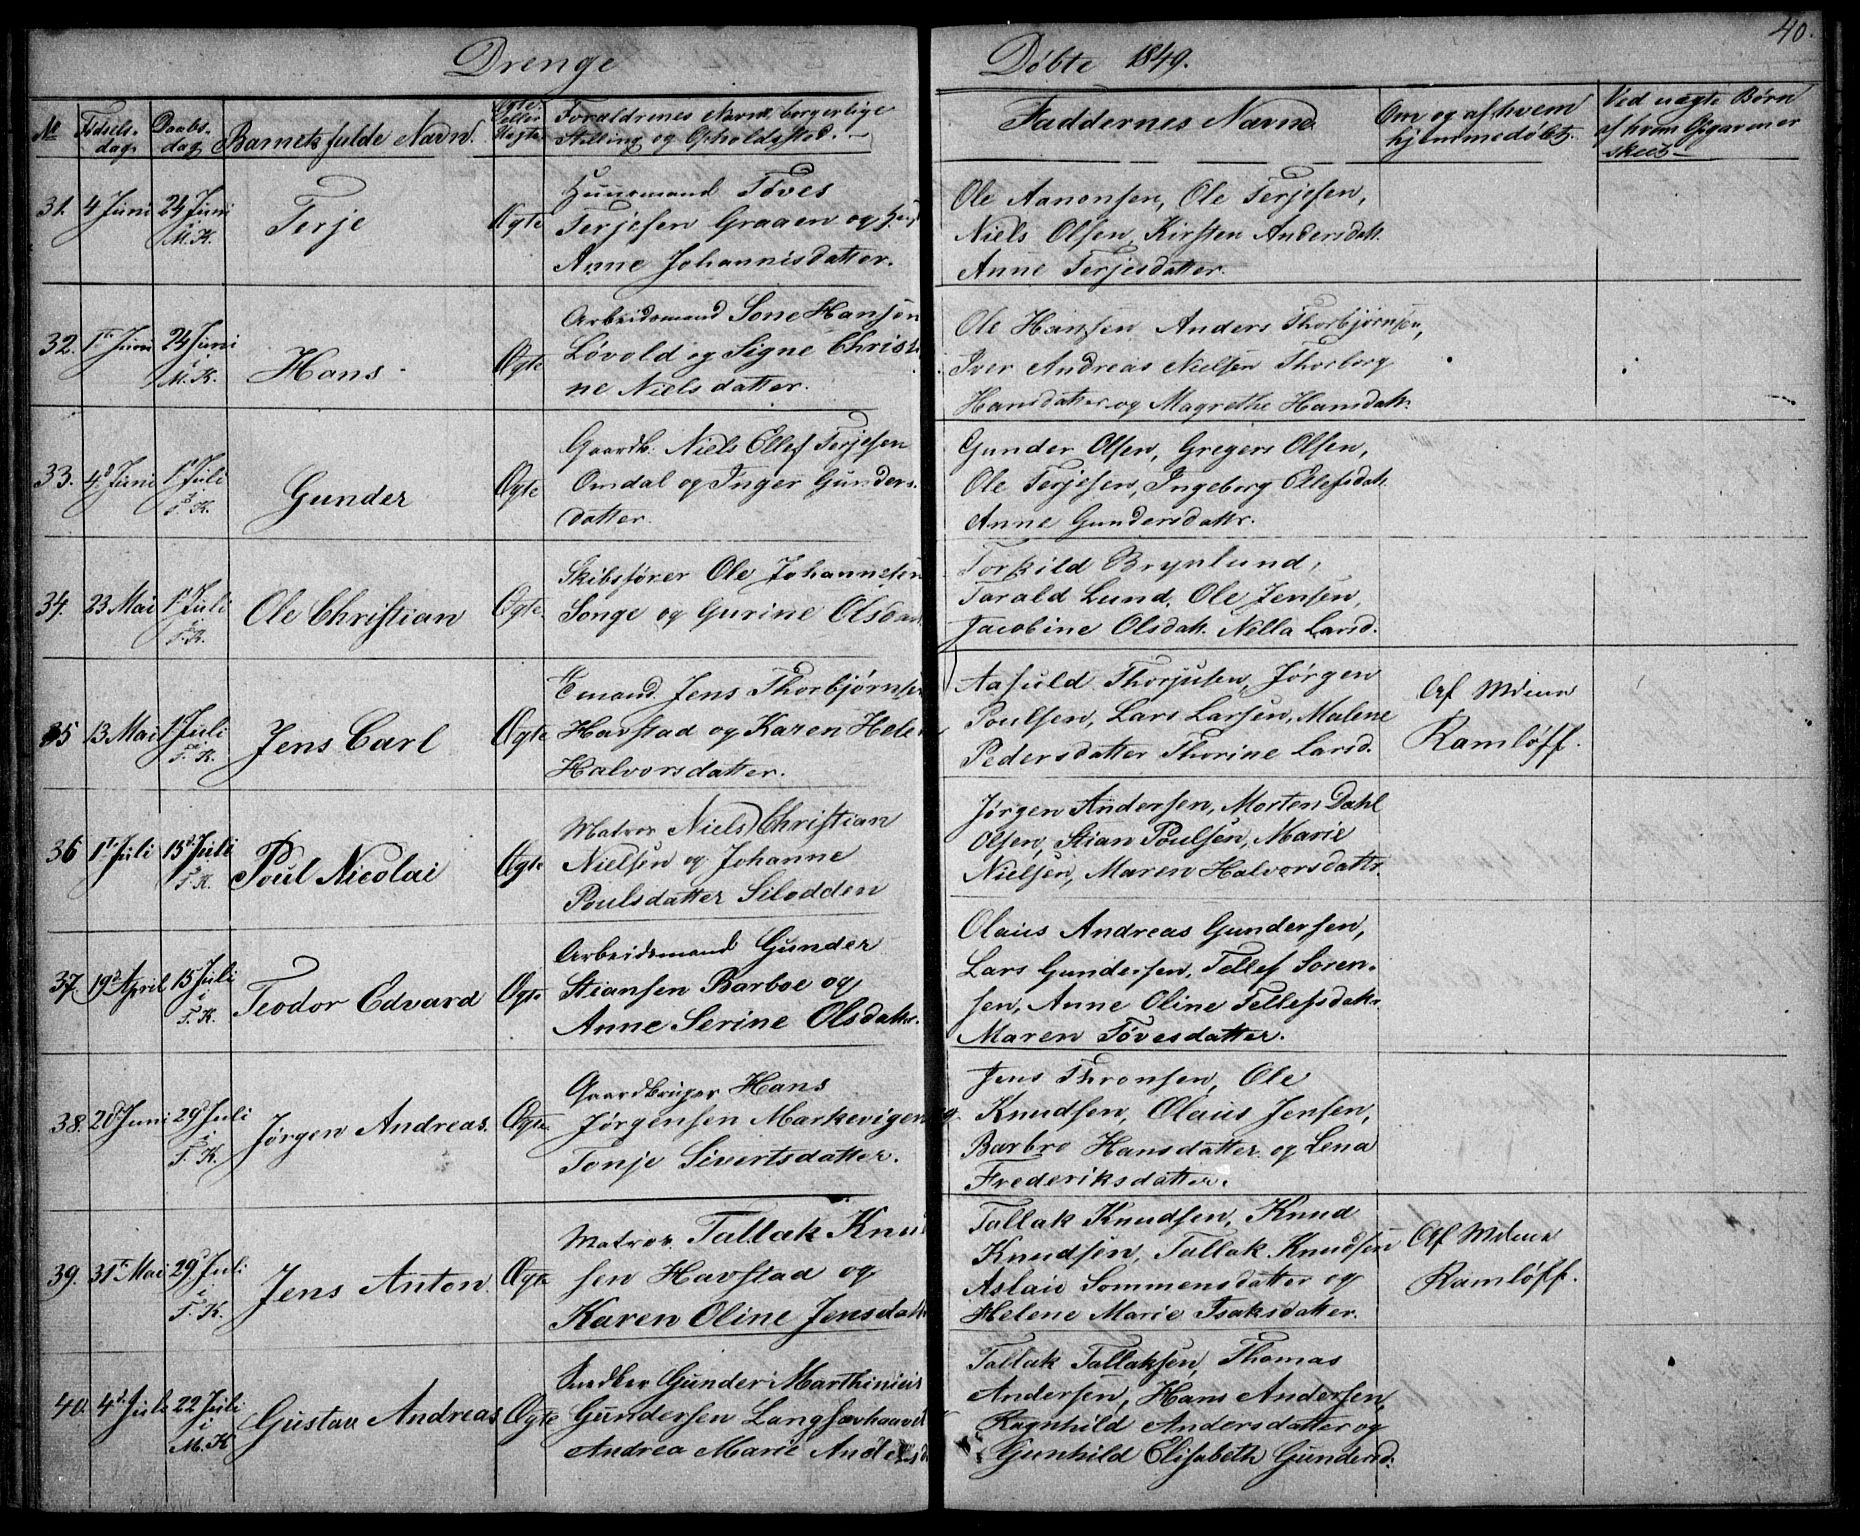 40.
Drenge
Døbte 1849.
No Fødsels-dag Daabs-dag Barnets fulde Navn. Ægte eller Uægte Forældrenes Navn, borgerlige Stilling og Opholdssted.
Faddernes Navne Om og af hvem hjemmedøbt. Ved uægte Børn
31. 4 Juni 24 Juni i M. K. Terje Ægte Huusmand Töves
Terjesen Graaen og
Anne Johannisdatter.
Ole Aanonsen, Ole Terjesen,
Niels Olsen, Kirsten Andersdatt.
Anne Terjesdatter.
32. 1te Juni 24 Juni i M. K. Hans Ægte Arbeidsmand Sone Hansen
Løvold og Signe Christi
ne Nielsdatter.
Ole Hansen Anders Thorbjørnsen,
Iver Andreas Nielsen Thorborg
Hansdatter og Magrethe Hansdatt.
33. 4d Juni 1 Juli i T. K. Gunder Ægte Gaardb. Niels Ellef Terjesen
Omdal og Inger Gunders
datter.
Gunder Olsen, Gregers Olsen,
Ole Terjesen, Ingeborg Ellefsdatt.
Anne Gundersdatter.
34. 23 Mai 1 Juli i T. K. Ole Christian Ægte Skibsfører Ole Johannesen
Songe og Gurine Olsdat
Torkild Brynlund,
Tarald Lund, Ole Jensen,
Jacobine Olsdatt. Nella Larsd.
35 13 Mai 1 Juli i T. K. Jens Carl Ægte Emand Jens Thorbjørnsen
Havstad og Karen Hele
Halvorsdatter.
Aasuld Thorjusen, Jørgen
Poulsen, Lars Larsen, Malene
Pedersdatter Thorine Larsd.
Af
Ramløff.
36 1t Juli 15d Juli i T. K. Poul Nicolai Ægte Matros Niels Christian
Nielsen og Johanne
Poulsdatter Silodden
Jørgen Andersen, Morten Dahl
Olsen, Stian Poulsen, Marie
Nielsen, Maren Halvorsdattr.
37. 19d April 15 Juli i T. K. Teodor Edvard Ægte Arbeidsmand Gunder
Stiansen Barboe og
Anne Serine Olsdattr.
Olaus Andreas Gundersen,
Lars Gundersen, Tellef Soren-
sen, Anne Oline Tellefsdattr
Maren Tövesdatter.
38. 20d Juni 29 Juli i T. K. Jørgen Andreas. Ægte Gaardbruger Hans
Jørgensen Markevigen og
Tonje Sivertsdatter.
Jens Thronsen, Ole
Knudsen, Olaus Jensen,
Barbro Hansdatter og Lena
Frederiksdatter.
39. 31t Mai 29 Juli i T. K. Jens Anton. Ægte Matros Tallak Knud
sen Havstad og
Karen Oline Jensdatt
Tallak Knudsen, Knud
Knudsen, Tallak Knudsen
Aslau Sommensdatter og
Helene Marie Isaksdatter.
Af
Ramløff.
40. 4d Juli 22 Juli i M. K Gustav Andreas Ægte Gunder Marthinius
Gundersen Langsævhaavet
Andrea Marie Andersd
Tallak Tallaksen, Thomas
Andersen, Hans Andersen,
Ragnhild Andersdatter og
Gunhild Elisabeth Gundersd.